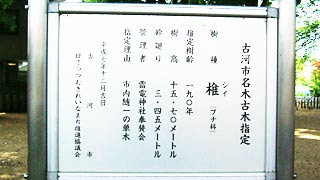 古河市名木古木指定
樹種 椎(ブナ科)
シイ
指定樹齢 一九〇年
樹高 十五・七〇メートル
幹廻り 三・四五メートル
管理者 雷電神社奉賛会
指定理由 市内随一の巣木
平成七年十二月吉日
古河市
花いっぱいきれいなまち推進協議会